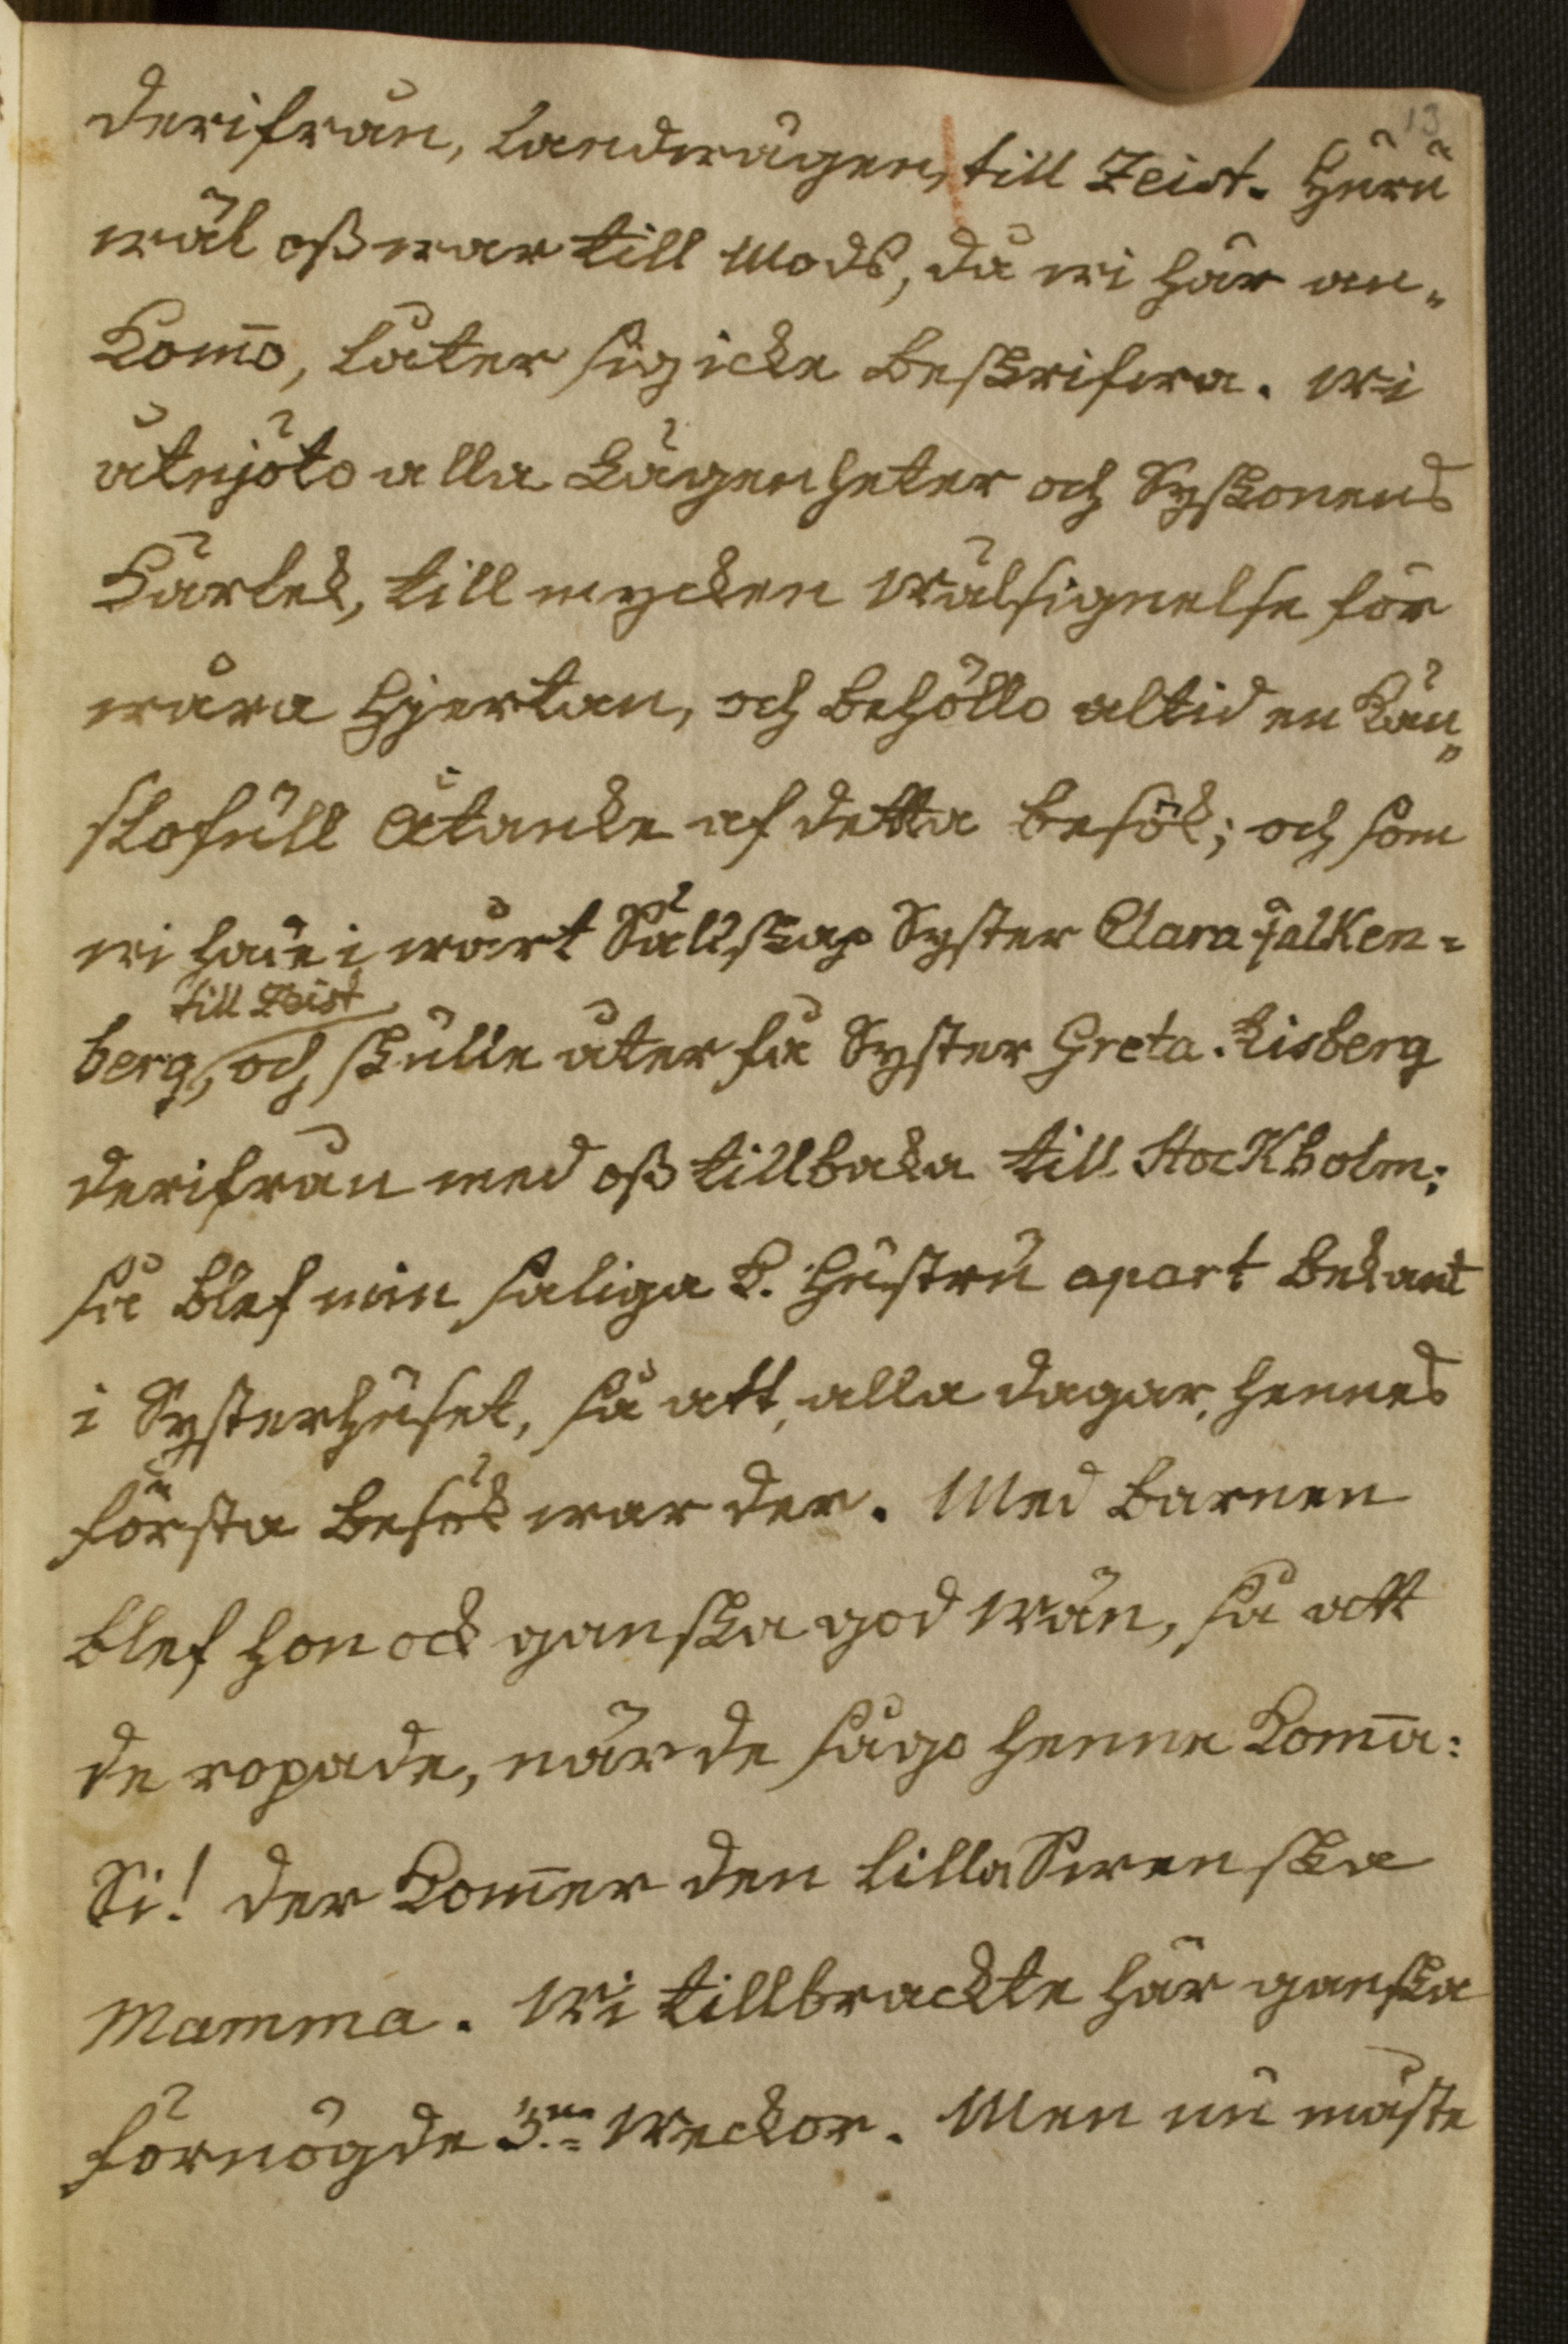 13
derifrån, Landwägen, till Zeist. Huru
wäl oß war till Mods, då wi här an„
kom̄o, låter sig icke beskrifwa. Wi
åtnjöto alla Lägenheter och Syskonens
Kärlek, till mycken Wälsignelse för
wåra Hjertan, och behöllo altid en Kän„
slofull Åtanke af detta besök; och som
wi hade i wårt Sällskap Syster Clara Falken=
till Zeist
berg, och skulle åter få Syster Greta Risberg
derifrån med oß tillbaka till Stockholm;
så blef min saliga K. Hustru apart bekant
i Systerhuset, så att, alla dagar, hennes
första besök war der. Med Barnen
blef hon ock ganska god Wän, så att
de ropade, när de sågo henne Kom̄a:
Si! der Kom̄er den lilla Swenska
Mamma. Wi tillbrackte här ganska
förnögde 3.ne Weckor. Men nu måste